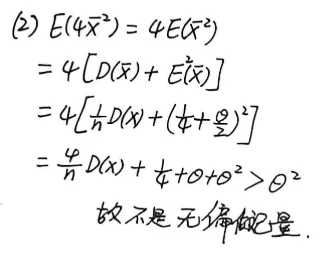 (2) E(4x̄²) = 4E(x̄²)
= 4[D(x̄) + E²(x̄)]
= 4[1/n D(x) + (1/4 + θ/2)²]
= 4/n D(x) + 1/4 + θ + θ² > θ²
故不是无偏估计量.